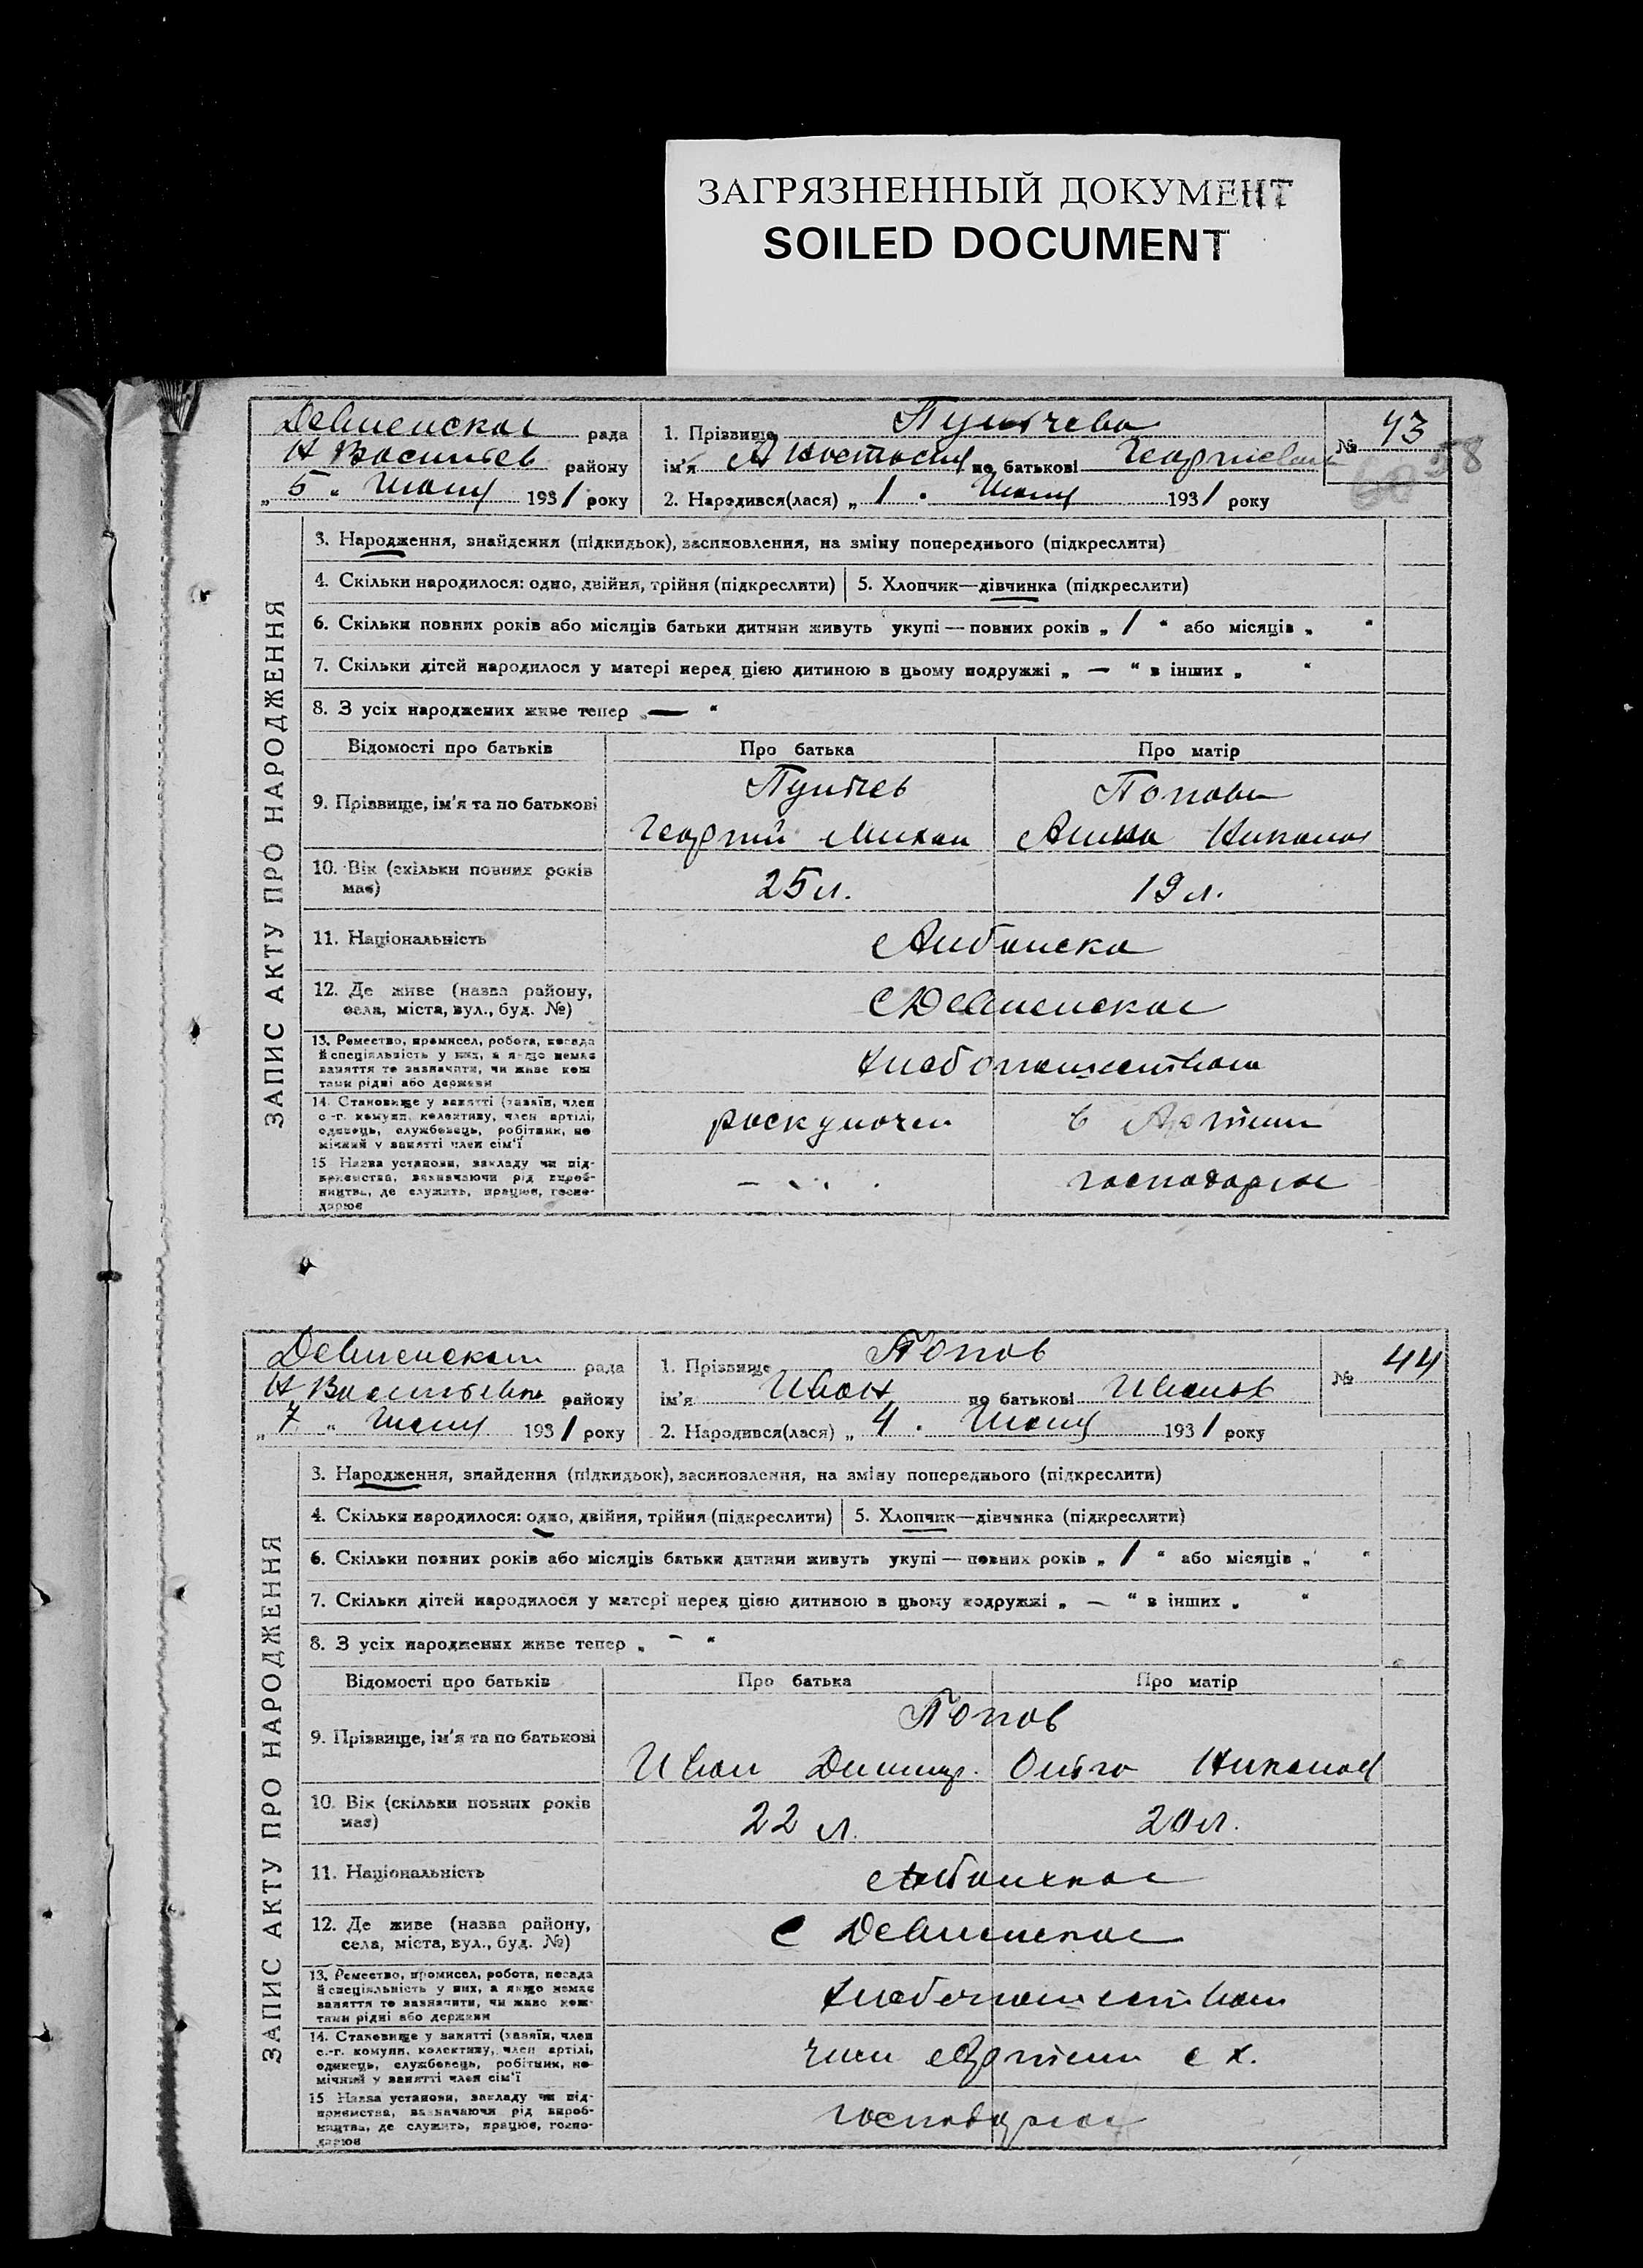 ЗАГРЯЗНЕННЫЙ ДОКУМЕНТ
SOILED DOCUMENT
Девненское рада
Н Васильев району
„ 5 " 193 1 року
1. Прізвище
ім'я Анастасия по батькові Георгиевна
2. Народився(лася) „ 1 " 193 1 року
№ 43
58
60
ЗАПИС АКТУ ПРО НАРОДЖЕННЯ
3. Народження, знайдення (підкидьок), засиновлення, на зміну попереднього (підкреслити)
4. Скільки народилося: одно, двійня, трійня (підкреслити)
5. Хлопчик—дівчинка (підкреслити)
6. Скільки повних років або місяців батьки дитини живуть укупі — повних років „ 1 " або місяців „ "
7. Скільки дітей народилося у матері перед цією дитиною в цьому подружжі „ — " в інших „ "
8. З усіх народжених живе тепер „ — "
Відомості про батьків Про батька Про матір
9. Прізвище, ім'я та по батькові
Попова
Георгий Михаи
10. Вік (скільки повних років має)
25 л. 19 л.
11. Національність
Албанска
12. Де живе (назва району, села, міста, вул., буд. №)
С Девненское
13. Ремество, промисел, робота, посада й спеціяльність у них, а якщо немає заняття то зазначити, чи живе коштами рідні або держави
хлебопашеством
14. Становище у занятті (хазяїн, член с.-г. комуни, колективу, член артілі, одинець, службовець, робітник, помічний у занятті член сім'ї
в Артели
15 Назва установи, закладу чи підприємства, зазначаючи рід виробництва, де служить, працює, господарює
господарское
рада
Н Васильевка району
„ 7 " 193 1 року
1. Прізвище Попов
ім'я Иван по батькові Иванов
2. Народився(лася) „ 4 " 193 1 року
№ 44
ЗАПИС АКТУ ПРО НАРОДЖЕННЯ
3. Народження, знайдення (підкидьок), засиновлення, на зміну попереднього (підкреслити)
4. Скільки народилося: одно, двійня, трійня (підкреслити)
5. Хлопчик—дівчинка (підкреслити)
6. Скільки повних років або місяців батьки дитини живуть укупі — повних років „ 1 " або місяців „ "
7. Скільки дітей народилося у матері перед цією дитиною в цьому подружжі „ — " в інших „ "
8. З усіх народжених живе тепер „ — "
Відомості про батьків Про батька Про матір
9. Прізвище, ім'я та по батькові
Попов
Иван Ольга
10. Вік (скільки повних років має)
22 л. 20 л.
11. Національність
Албанское
12. Де живе (назва району, села, міста, вул., буд. №)
С Девненское
13. Ремество, промисел, робота, посада й спеціяльність у них, а якщо немає заняття то зазначити, чи живе коштами рідні або держави
хлебопашеством
14. Становище у занятті (хазяїн, член с.-г. комуни, колективу, член артілі, одинець, службовець, робітник, помічний у занятті член сім'ї
член Артели с х.
15 Назва установи, закладу чи підприємства, зазначаючи рід виробництва, де служить, працює, господарює
господарское